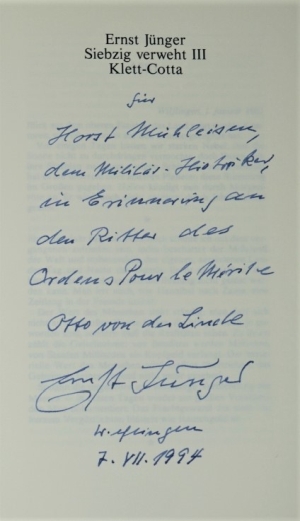 Ernst Jünger
Siebzig verweht III
Klett-Cotta
für
Horst Mühleisen,
dem Militär-Historiker,
in Erinnerung an
den Ritter des
Ordens Pour le Mérite
Otto von der Linde
Ernst Jünger
Wilflingen
7. VII. 1994